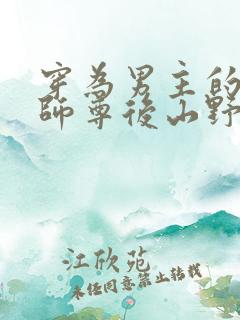 穿為男主的
師尊後山野
江欣苑
未经同意禁止转载